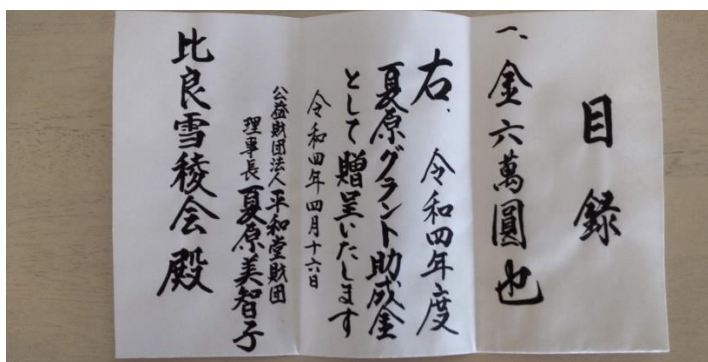 目録
一、金六萬圓也
右、令和四年度
夏原グラント助成金
として贈呈いたします
令和四年四月十六日
公益財団法人平和堂財団
理事長 夏原美智子
比良雪稜会殿